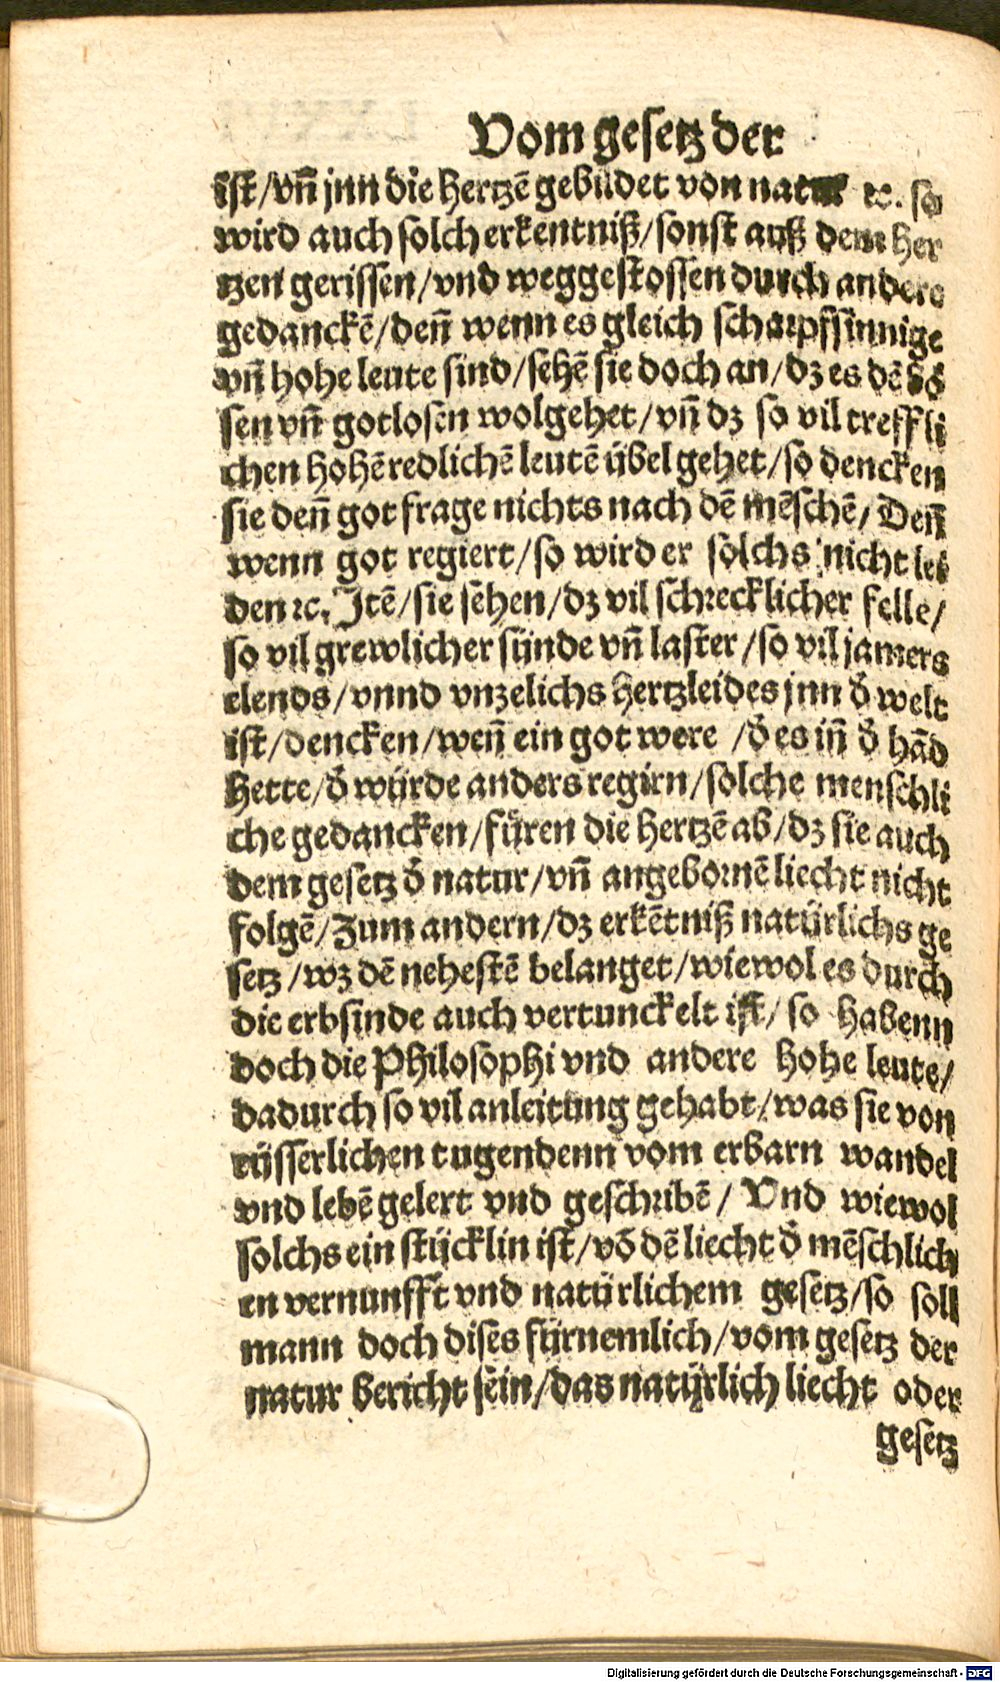 Vom gesetz der
ist/vñ jnn die hertzē gebildet von natur ꝛc. so
wird auch solch erkentniß/sonst auß dem her
tzen gerissen/vnd weggestossen durch andere
gedanckē/deñ wenn es gleich scharpfsinnige
vñ hohe leute sind/sehē sie doch an/dz es dē bö
sen vñ gotlosen wolgehet/vñ dz so vil treffli
chen hohē redlichē leutē übel gehet/so dencken
sie deñ got frage nichts nach dē mēschē/Deñ
wenn got regiert/so wird er solchs nicht lei
den ꝛc. Jtē/sie sehen/dz vil schrecklicher felle/
so vil grewlicher sünde vñ laster/so vil jamers
elends/vnnd vnzelichs hertzleides jnn d̕ welt
ist/dencken/weñ ein got were /d̕ es iñ d̕ hād
hette/d̕ würde anders regirn/solche menschli
che gedancken/füren die hertzē ab/dz sie auch
dem gesetz d̕ natur/vñ angebornē liecht nicht
folgē/Zum andern/dz erkētniß natürlichs ge
setz/wz dē nehestē belanget/wiewol es durch
die erbsinde auch vertunckelt ist/ so habenn
doch die Philosophi vnd andere hohe leute/
dadurch so vil anleitung gehabt/was sie von
eüsserlichen tugendenn vom erbarn wandel
vnd lebē gelert vnd geschribē/ Vnd wiewol
solchs ein stücklin ist/vō dē liecht d̕ mēschlich
en vernunfft vnd natürlichem gesetz/so soll
mann doch dises fürnemlich/vom gesetz der
natur bericht sein/das natürlich liecht oder
gesetz
Digitalisierung gefördert durch die Deutsche Forschungsgemeinschaft - DFG